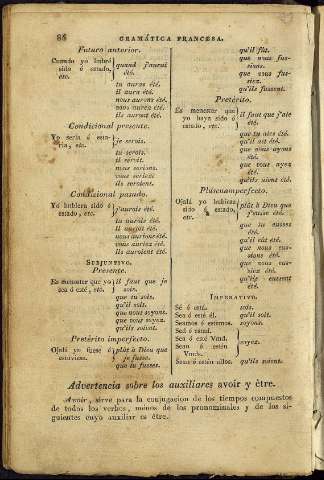 88 GRAMÁTICA FRANCESA.
Futuro anterior.
Cuando yo habré
sido ó estado,
etc.
quand j'aurai
été.
tu auras été.
il aura été.
nous aurons été.
vous aurez été.
ils auront été.
Condicional presente.
Yo seria ó esta-
ria, etc.
je serais.
tu serais.
il serait.
nous serions.
vous seriez
ils seraient.
Condicional pasado.
Yo hubiera sido ó
estado, etc.
j'aurais été.
tu aurais été.
il aurait été.
nous aurions été.
vous auriez été.
ils auraient été.
SUBJUNTIVO.
Presente.
Es menester que yo
sea ó esté, etc.
il faut que je
sois.
que tu sois.
qu'il soit.
que nous soyons.
que vous soyez.
qu'ils soient.
Pretérito imperfecto.
Ojalá yo fuese ó
estuviese.
plût à Dieu que
je fusse.
que tu fusses.
qu'il fût.
que nous fus-
sions.
que vous fus-
siez.
qu'ils fussent.
Pretérito.
Es menester que
yo haya sido ó
estado, etc.
il faut que j'aie
été.
que tu aies été.
qu'il ait été.
que nous ayons
été.
que vous ayez
été.
qu'ils aient été.
Pluscuamperfecto.
Ojalá yo hubiera
sido ó estado,
etc.
plût à Dieu que
j'eusse été.
que tu eusses
été.
qu'il eût été.
que nous eus-
sions été.
que vous eus-
siez été.
qu'ils eussent
été.
IMPERATIVO.
Sé ó está. sois.
Sea ó esté él. qu'il soit.
Seamos ó estemos. soyons.
Sed ó estad.
Sea ó esté Vmd.
Sean ó estén
Vmds.
soyez.
Sean ó estén ellos. qu'ils soient.
Advertencia sobre los auxiliares avoir y être.
Avoir, sirve para la conjugacion de los tiempos compuestos
de todos los verbos, ménos de los pronominales y de los si-
guientes cuyo auxiliar es être.